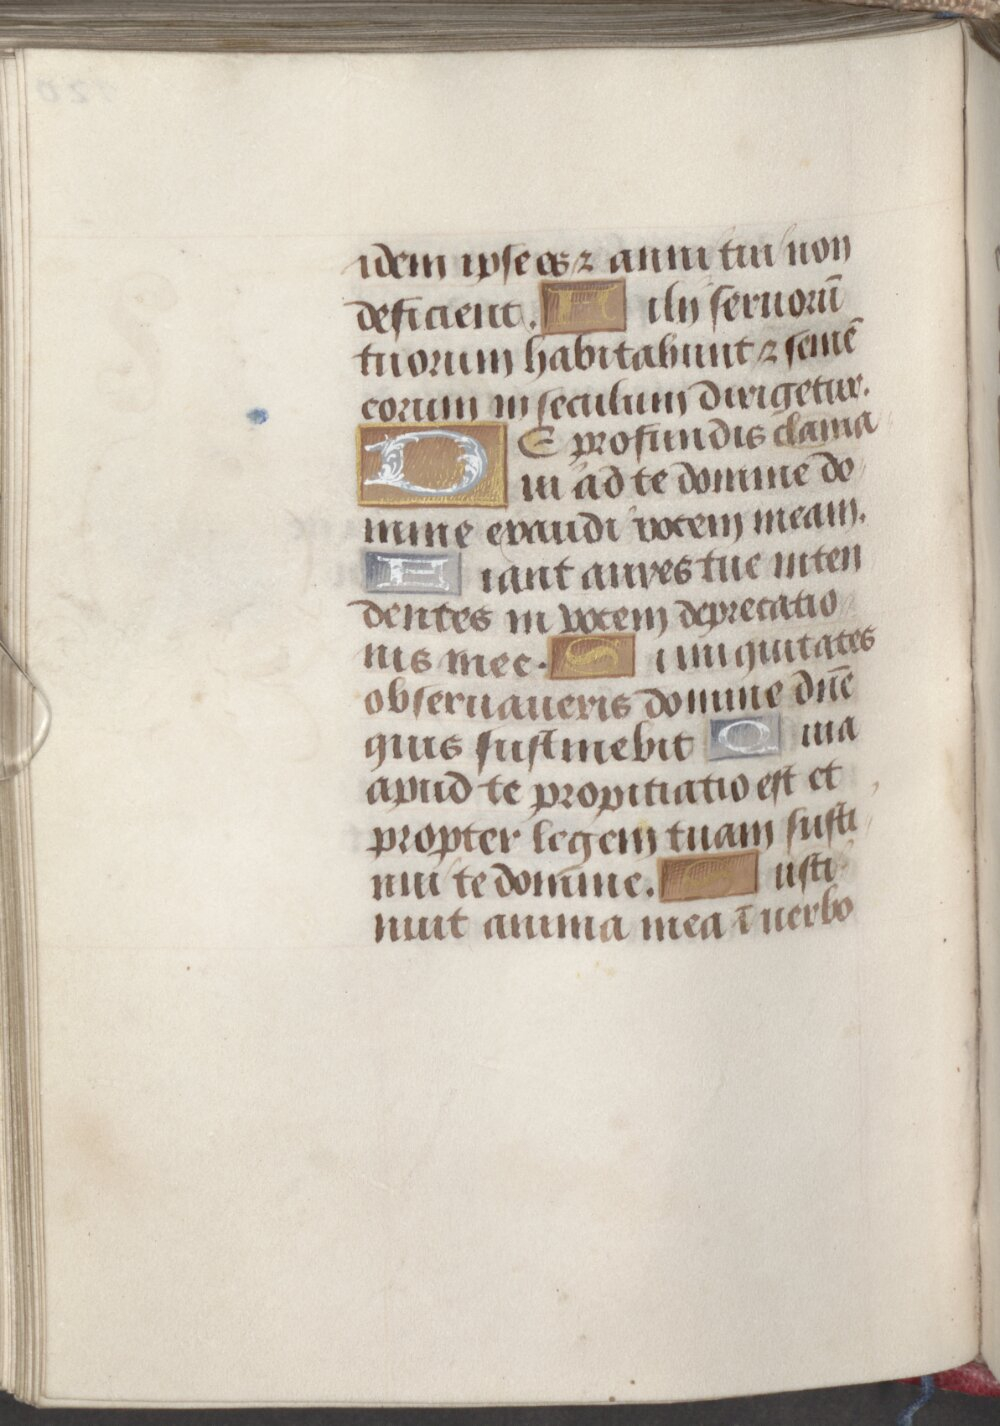 idem ipse es ⁊ anni tui non
deficient. Filii seruorū
tuorum habitabunt ⁊ semē
eorum in seculum dirigetur.
DE profundis clama
ui ad te domine do
mine exaudi vocem meam.
Fiant aures tue inten
dentes in vocem deprecatio
nis mee. Si iniquitates
obseruaueris domine dñe
quis sustinebit Quia
apud te propitiatio est et
propter legem tuam susti
nui te domine. Susti
nuit anima mea ī uerbo